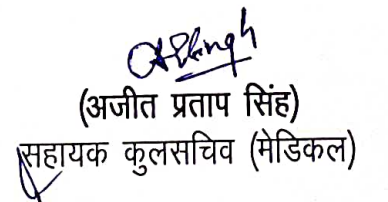 (अजीत प्रताप सिंह)
सहायक कुलसचिव (मेडिकल)